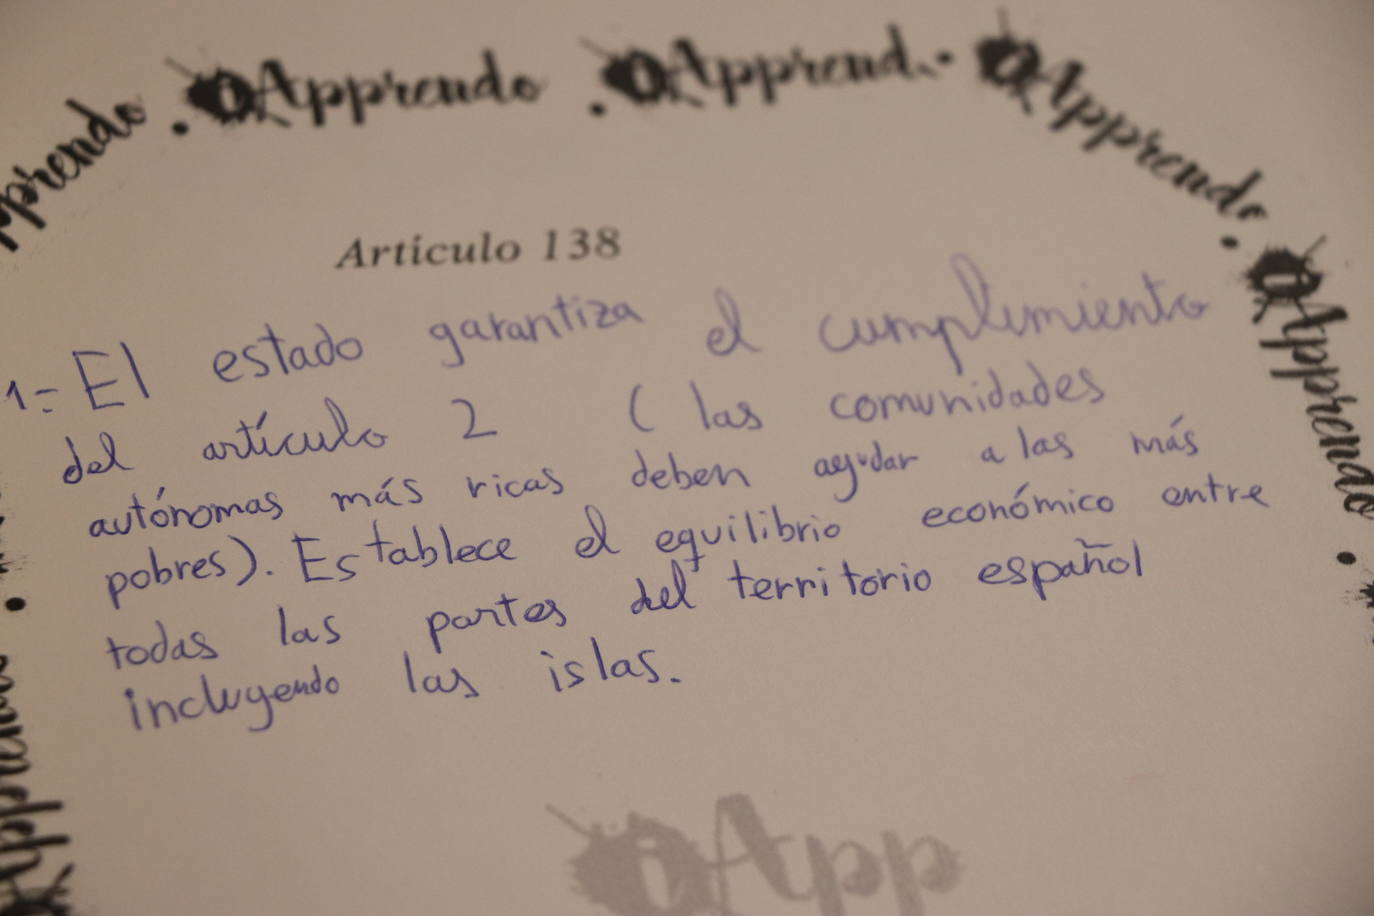 prendo . iApprendo . iApprend. . iApprendo . iApprendo .
Artículo 138
1= El estado garantiza el cumplimiento
del artículo 2 ( las comunidades
autónomas más ricas deben ayudar a las más
pobres). Establece el equilibrio económico entre
todas las partes del territorio español
incluyendo las islas.
iApp
Apprendo